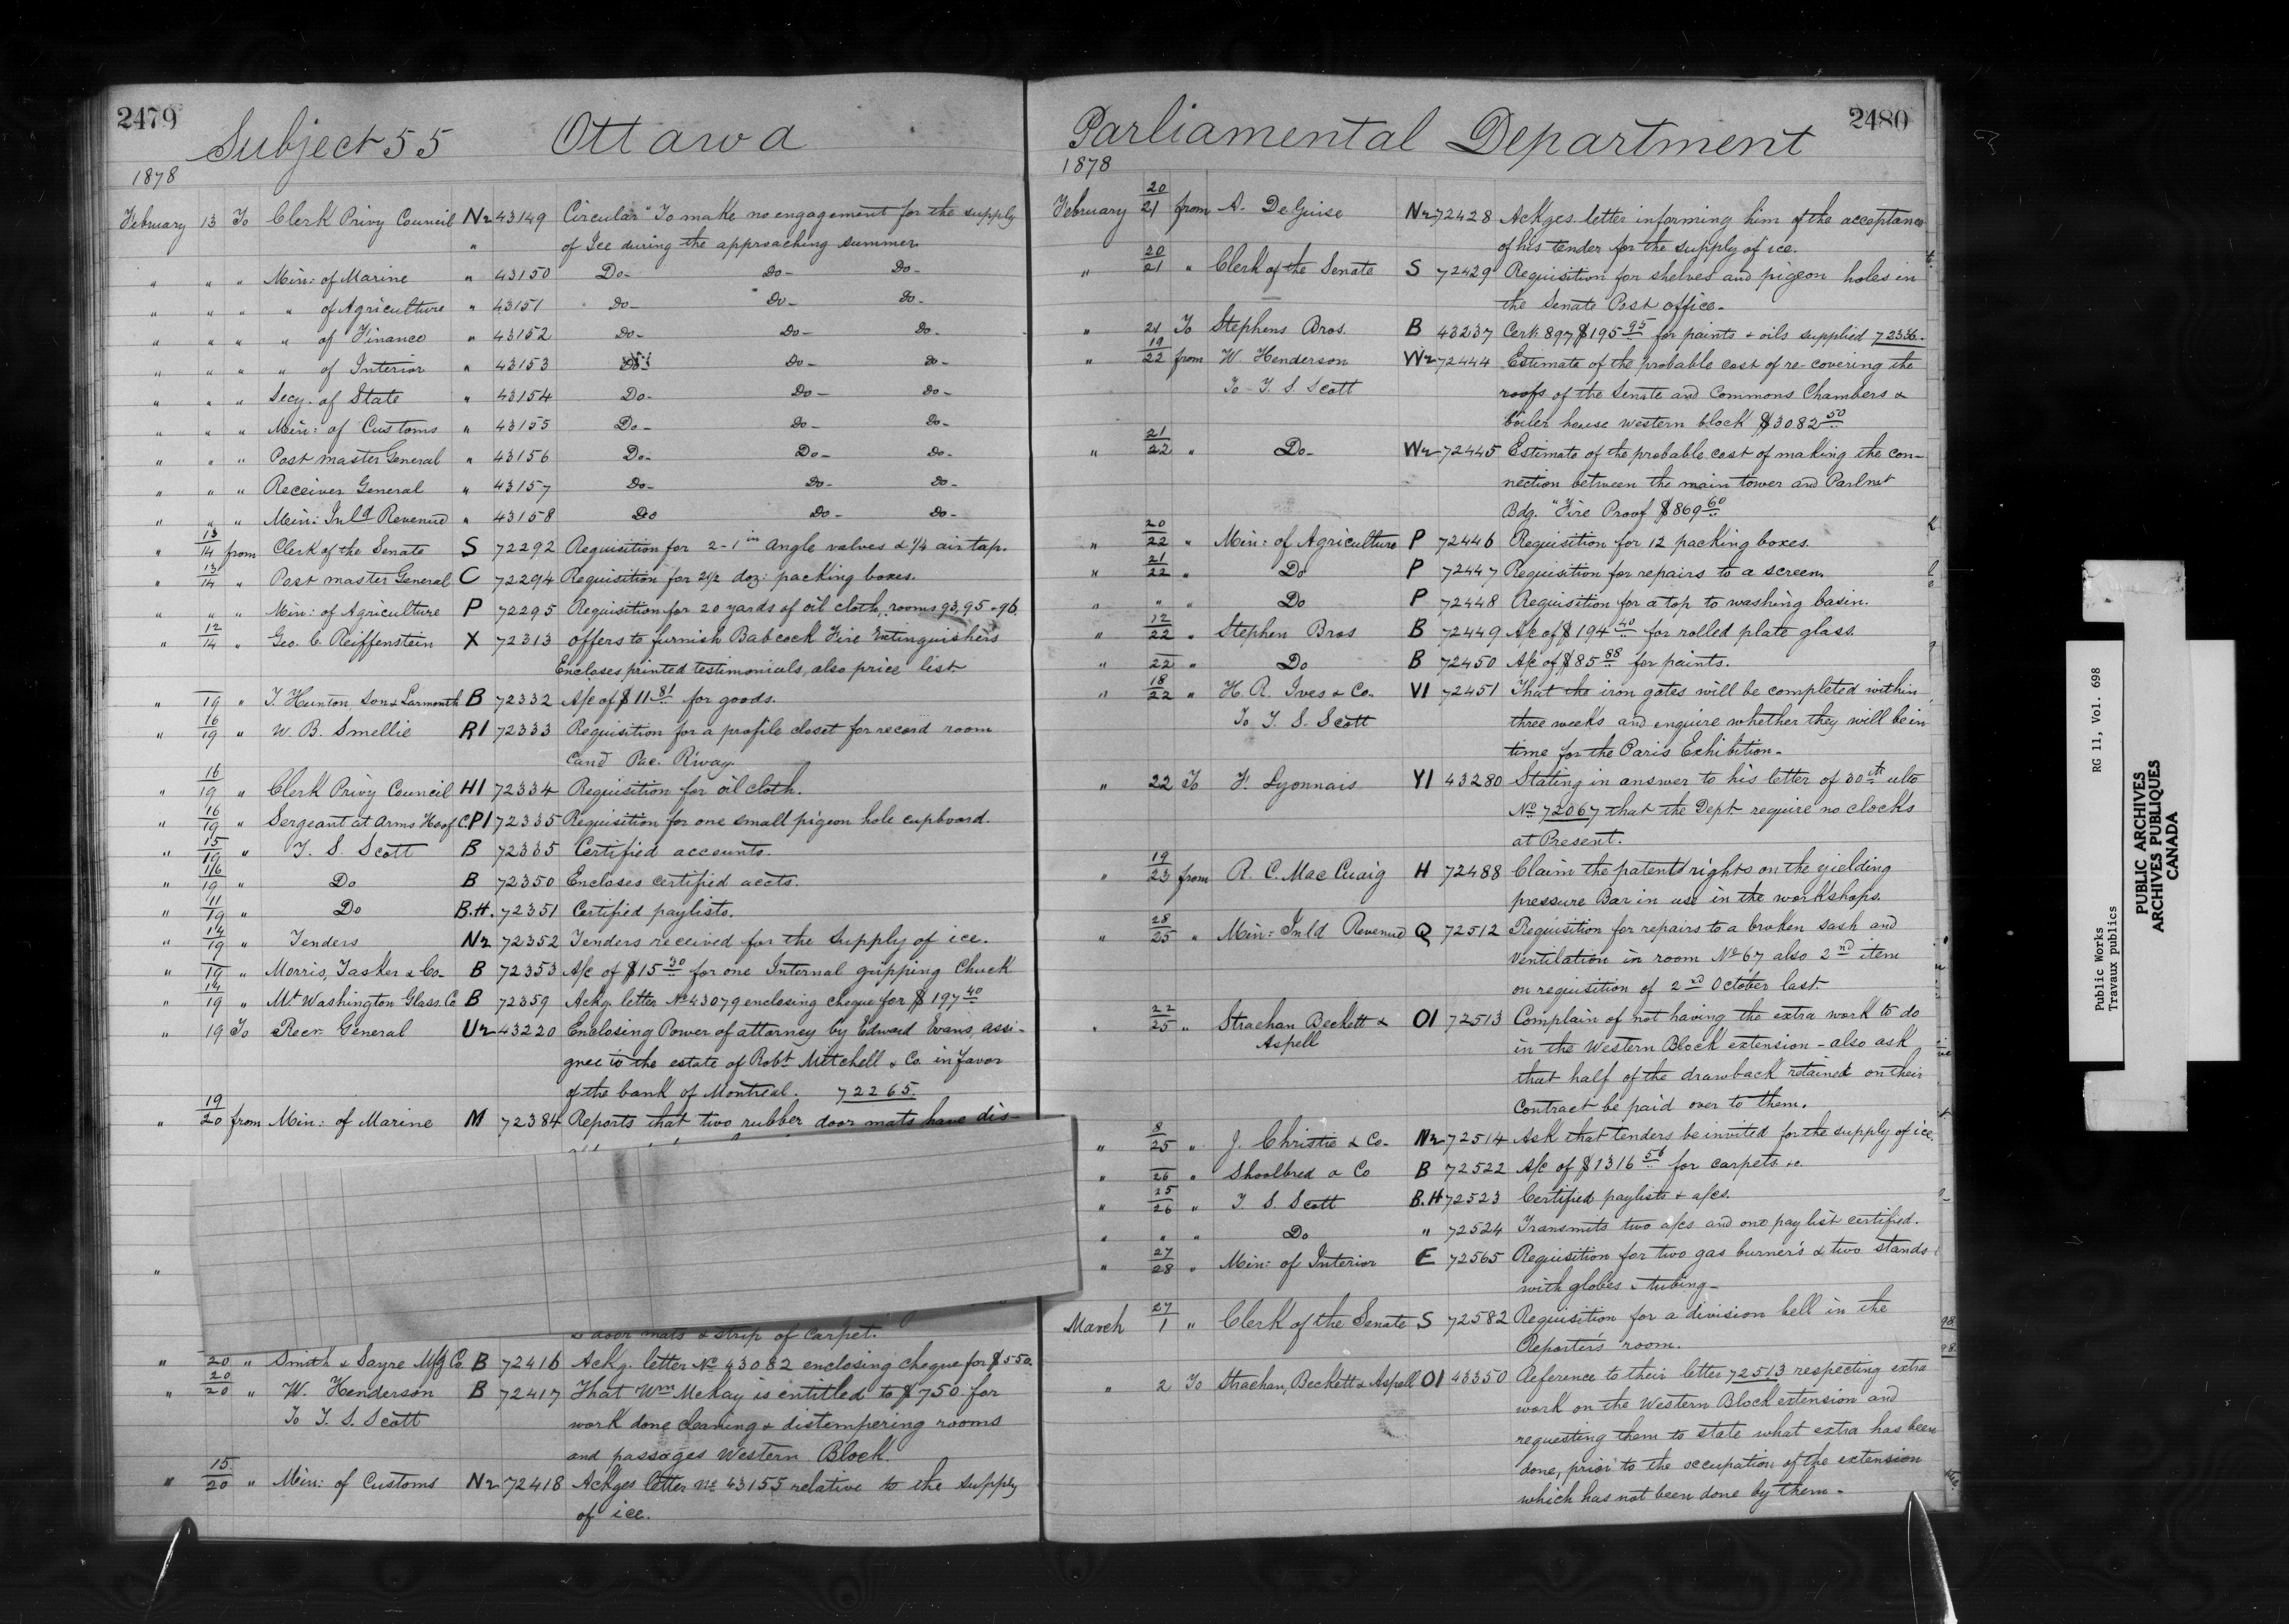 2479
Subject 55 Ottawa
1878
February 13 To Clerk Privy Council N2 43149 Circular "To make no engagement for the supply
" of Ice during the approaching summer
" " " Min: of Marine " 43150 Do- Do- Do-
" " " " of Agriculture " 43151 Do- Do- Do-
" " " " of Finance " 43152 Do- Do- Do-
" " " " of Interior " 43153 Do- Do-
" " " Secy. of State " 43154 Do- Do- Do-
" " " Min: of Customs " 43155 Do- Do- Do-
" " " Post master General " 43156 Do- Do- Do-
" " " Receiver General " 43157 Do- Do- Do-
" " " Min: Inld Revenue " 43158 Do Do- Do-
" 13/14 from Clerk of the Senate S 72292 Requisition for 2-1 in Angle valves & 1/4 air tap.
" 13/14 " Post master General C 72294 Requisition for 2 1/2 doz: packing boxes.
" " " Min: of Agriculture P 72295 Requisition for 20 yards of oil cloth, rooms 93, 95 & 96.
" 12/14 " Geo. C. Reiffenstein X 72313 Offers to furnish Babcock Fire Extinguishers
Encloses printed testimonials, also price list.
" 19 " T. Hunton Son & Larmonth B 72332 A/c of $11.81 for goods.
" 16/19 " W. B. Smellie R1 72333 Requisition for a profile closet for record room
Cand Pac. R'way.
" 16/19 " Clerk Privy Council H1 72334 Requisition for oil cloth.
" 16/19 " Sergeant at Arms H of C. P1 72335 Requisition for one small pigeon hole cupboard.
" 15/19 " T. S. Scott B 72335 Certified accounts.
" 16/19 " Do B 72350 Encloses certified accts.
" 11/19 " Do B.H. 72351 Certified paylists.
" 14/19 " Tenders N2 72352 Tenders received for the supply of ice.
" 19 " Morris, Tasker & Co- B 72353 A/c of $15.30 for one Internal gripping Chuck
" 14/19 " Mt Washington Glass. Co B 72359 Ackg. letter No 43079 enclosing cheque for $197.40
" 19 To Recr. General U2 43220 Enclosing Power of attorney by Edward Evans, assi-
gnee to the estate of Robt Mitchell & Co. in favor
of the bank of Montreal. 72265.
" 19/20 from Min: of Marine M 72384 Reports that two rubber door mats have dis-
"
door mats & strip of carpet.
" 20 " Smith & Sayre Mfg Co. B 72416 Ackg. letter No 43082 enclosing cheque for $550.
" 20/20 " W. Henderson B 72417 That Wm McKay is entitled to $750. for
To T. S. Scott work done cleaning & distempering rooms
and passages Western Block.
" 15/20 " Min: of Customs N2 72418 Ackges letter No 43155 relative to the supply
of ice.
2480
Parliamental Department
1878
February 20/21 from A. DeGuise N2 72428 Ackges letter informing him of the acceptance
of his tender for the supply of ice.
" 20/21 " Clerk of the Senate S 72429 Requisition for shelves and pigeon holes in
the Senate Post Office-
" 21 To Stephens Bros. B 43237 Cert: 897 $195.95 for paints & oils supplied 72336.
" 19/22 from W. Henderson W2 72444 Estimate of the probable cost of re-covering the
To T. S. Scott roofs of the Senate and Commons Chambers &
boiler house western block $3082.50
" 21/22 " Do- W2 72445 Estimate of the probable cost of making the con-
nection between the main tower and Parlmt
Bdg. "Fire Proof $869.60
" 20/22 " Min: of Agriculture P 72446 Requisition for 12 packing boxes.
" 21/22 " Do P 72447 Requisition for repairs to a screen.
" " " Do P 72448 Requisition for a top to washing basin.
" 12/22 " Stephen Bros B 72449 A/c of $194.40 for rolled plate glass.
" 22 " Do B 72450 A/c of $85.88 for paints.
" 18/22 " H. R. Ives & Co. V1 72451 That the iron gates will be completed within
To T. S. Scott three weeks and enquire whether they will be in
time for the Paris Exhibition-
" 22 To F. Lyonnais Y1 43280 Stating in answer to his letter of 30th ulto
No 72067 that the Dept. require no clocks
at Present.
" 19/23 from R. C. MacCuaig H 72488 Claim the patent rights on the yielding
pressure Bar in use in the workshops.
" 28/25 " Min: Inld Revenue Q 72512 Requisition for repairs to a broken sash and
Ventilation in room No 67 also 2nd item
on requisition of 2nd October last-
" 22/25 " Strachan Beckett & O1 72513 Complain of not having the extra work to do
Aspell in the Western Block extension - also ask
that half of the drawback retained on their
Contract be paid over to them.
" 8/25 " J. Christie & Co- N2 72514 Ask that tenders be invited for the supply of ice.
" 26 " Shoolbred & Co B 72522 A/c of $1316.56 for carpets &c.
" 25/26 " T. S. Scott B.H 72523 Certified paylists & a/cs.
" " " Do " 72524 Transmits two a/cs and one pay list certified.
" 27/28 " Min: of Interior E 72565 Requisition for two gas burner's & two stands
with globes & tubing-
March 27/1 " Clerk of the Senate S 72582 Requisition for a division bell in the
Reporter's room.
" 2 To Strachan, Beckett & Aspell O1 43350 Reference to their letter 72513 respecting extra
work on the Western Block extension and
requesting them to state what extra has been
done, prior to the occupation of the extension
which has not been done by them-
Public Works RG 11, Vol. 698
Travaux publics
PUBLIC ARCHIVES
ARCHIVES PUBLIQUES
CANADA